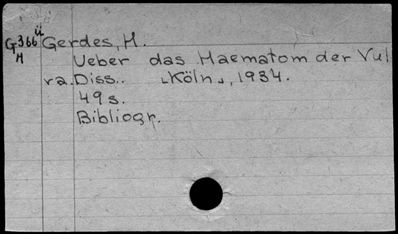 G366ü Gerdes, H.
H Ueber das Haematom der Vul
va. Diss. Köln, 1934.
49 s.
Bibliogr.